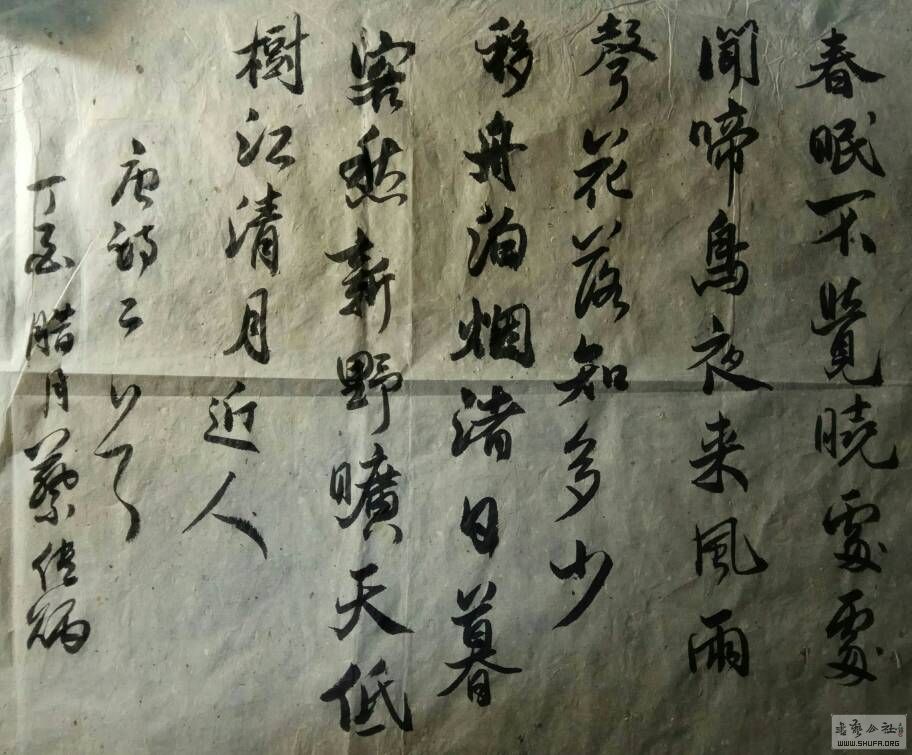 春眠不覺曉處處
聞啼鳥夜来風雨
聲花落知多少
移舟泊烟渚日暮
客愁新野曠天低
樹江清月近人
唐詩二首
丁酉腊月蔡佳炳
WWW.SHUFA.ORG